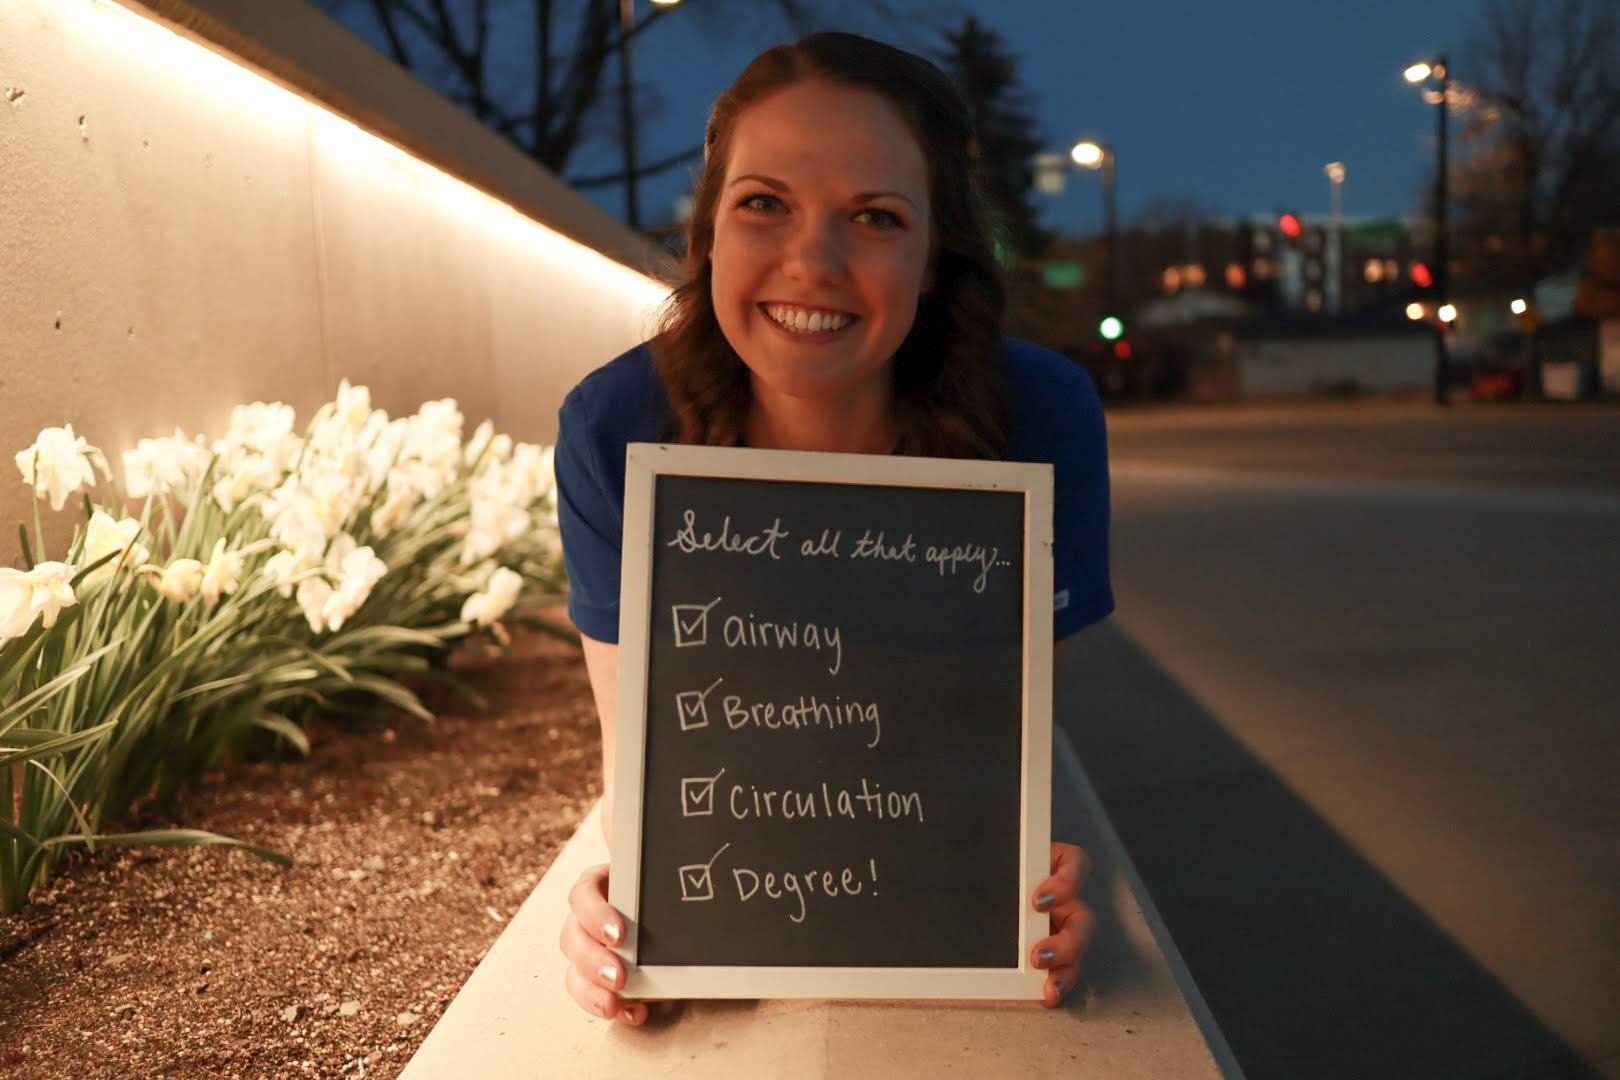 Select all that apply...
airway
Breathing
circulation
Degree!